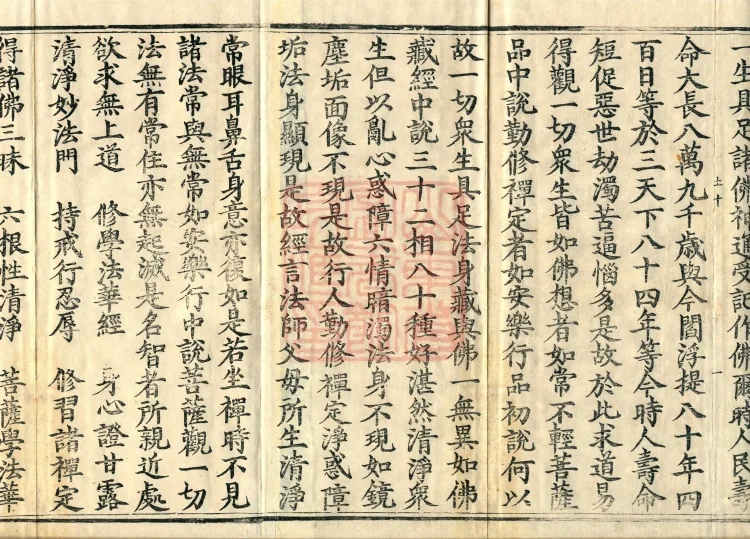 一生具足諸佛神通受記作佛爾時人民壽
命大長八萬九千歲與今閻浮提八十年四
百日等於三天下八十四年等今時人壽命
短促惡世劫濁苦逼惱多是故於此求道易
得觀一切眾生皆如佛想者如常不輕菩薩
品中說勤修禪定者如安樂行品初說何以
故一切眾生具足法身藏與佛一無異如佛
藏經中說三十二相八十種好湛然清淨眾
生但以亂心惑障六情暗濁法身不現如鏡
塵垢面像不現是故行人勤修禪定淨惑障
垢法身顯現是故經言法師父母所生清淨
常眼耳鼻舌身意亦復如是若坐禪時不見
諸法常與無常如安樂行中說菩薩觀一切
法無有常住亦無起滅是名智者所親近處
欲求無上道　修學法華經　身心證甘露
清淨妙法門　持戒行忍辱　修習諸禪定
得諸佛三昧　六根性清淨　菩薩學法華